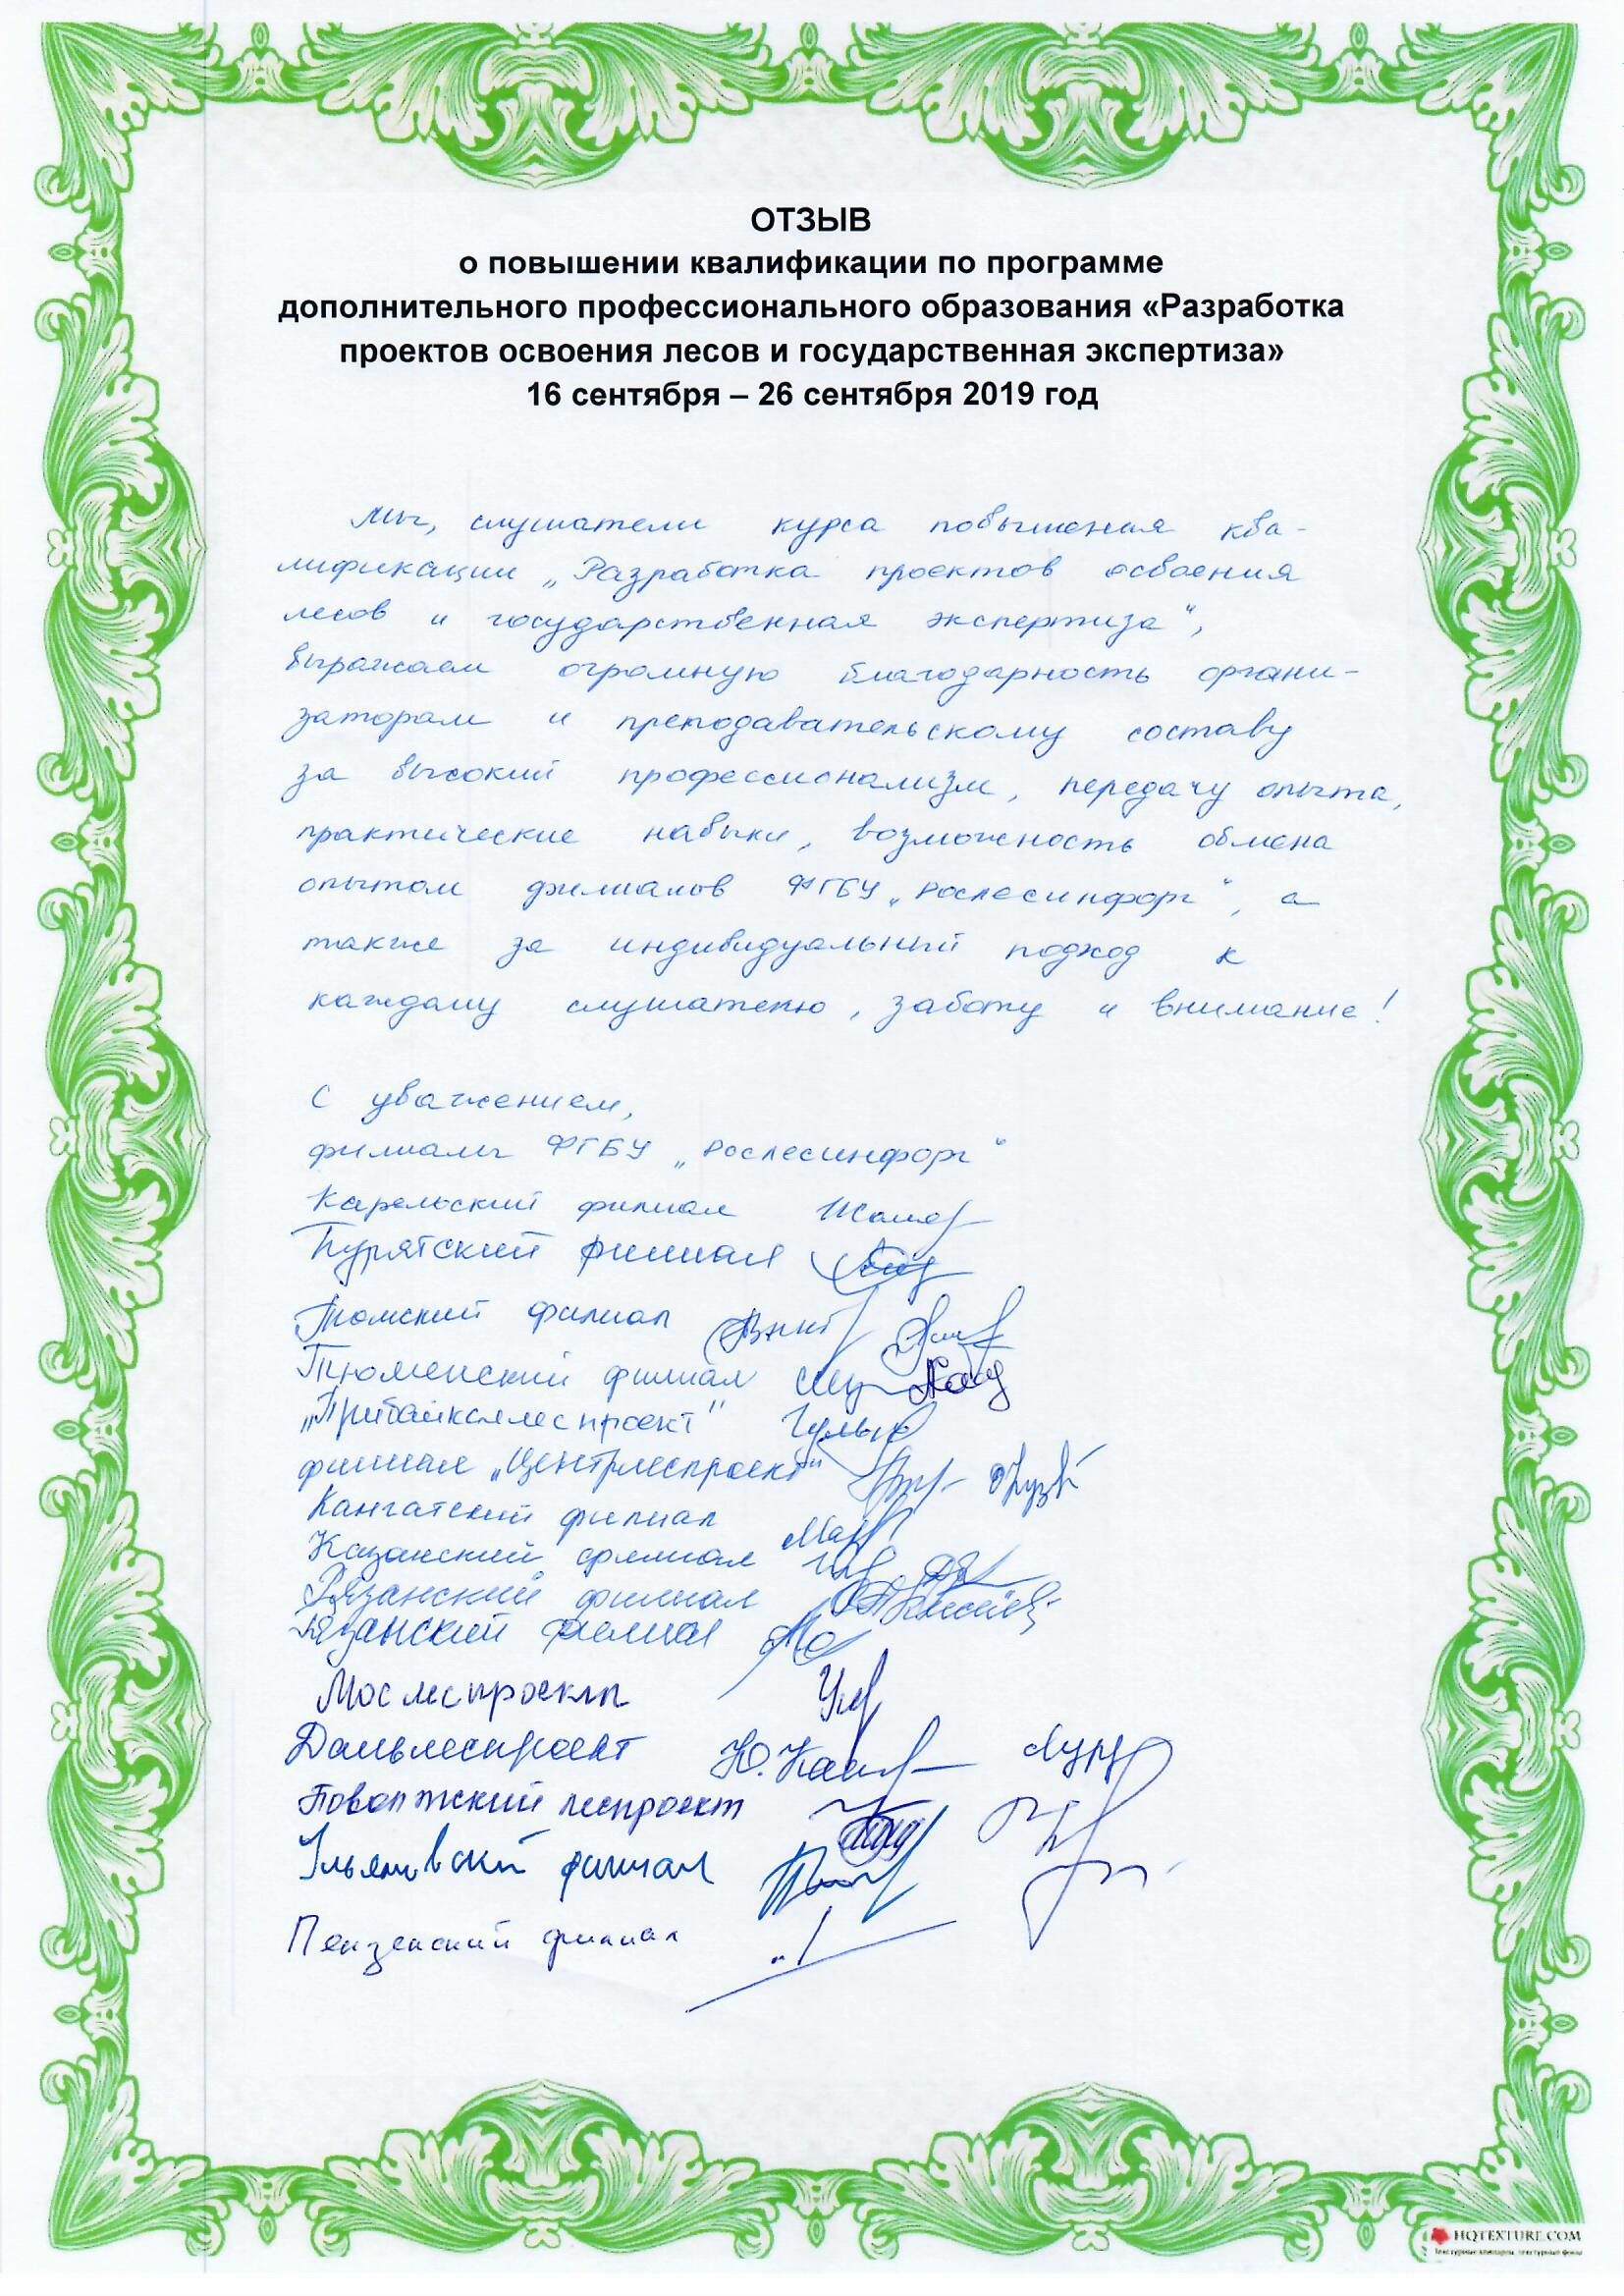 ОТЗЫВ
о повышении квалификации по программе
дополнительного профессионального образования «Разработка
проектов освоения лесов и государственная экспертиза»
16 сентября – 26 сентября 2019 год
Мы, слушатели курса повышения ква-
лификации „Разработка проектов освоения
лесов и государственная экспертиза“,
выражаем огромную благодарность органи-
заторам и преподавательскому составу
за высокий профессионализм, передачу опыта,
практические навыки, возможность обмена
опытом филиалов ФГБУ „Рослесинфорг“, а
также за индивидуальный подход к
каждому слушателю, заботу и внимание!
С уважением,
филиалы ФГБУ „Рослесинфорг“
Карельский филиал
Бурятский филиал
Томский филиал
Тюменский филиал
„Прибайкаллеспроект"
филиал „Центрлеспроект"
филиал
Казанский филиал
Рязанский филиал
Рязанский филиал
Мослеспроект
Дальлеспроект
Поволжский леспроект
Ульяновский филиал
Пензенский филиал
HQTEXTURE.COM